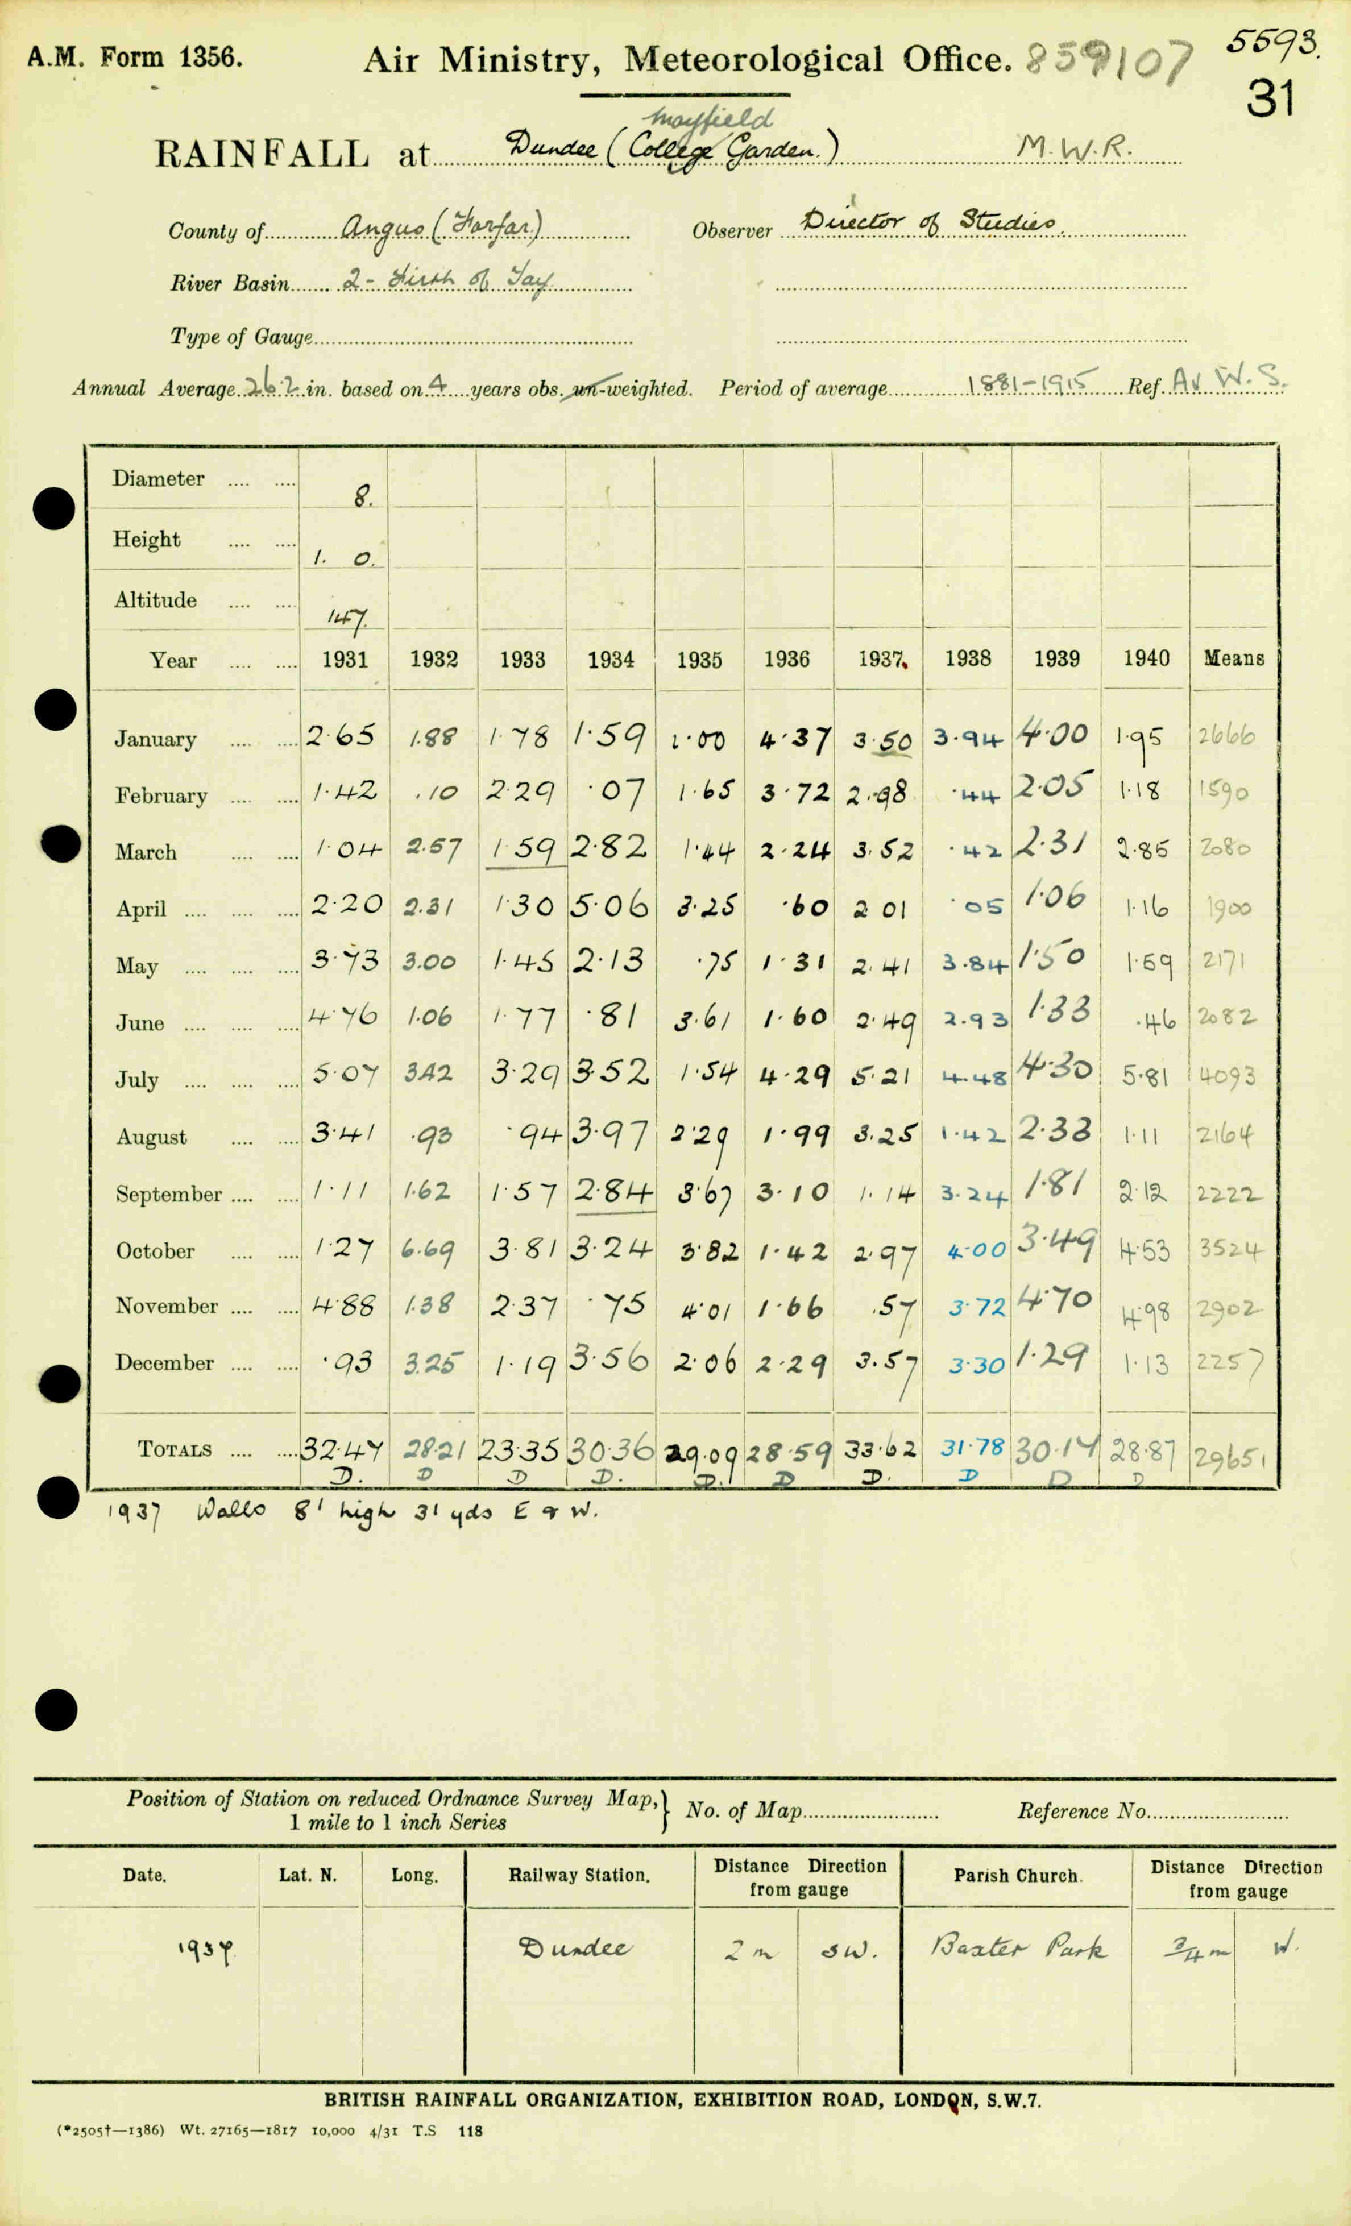 A.M. Form 1356. Air Ministry, Meteorological Office. 859107 5593.
31
Mayfield
RAINFALL at Dundee (College Garden.) M.W.R.
County of Angus (Forfar) Observer Director of Studies.
River Basin 2 - Firth of Tay
Type of Gauge
Annual Average 26.2 in. based on 4 years obs. un-weighted. Period of average 1881-1915 Ref. Av W.S.
Diameter 8.
Height 1. 0.
Altitude 147.
Year 1931 1932 1933 1934 1935 1936 1937. 1938 1939 1940 Means
January 2.65 1.88 1.78 1.59 1.00 4.37 3.50 3.94 4.00 1.95 2666
February 1.42 .10 2.29 .07 1.65 3.72 2.98 .44 2.05 1.18 1590
March 1.04 2.57 1.59 2.82 1.44 2.24 3.52 .42 2.31 2.85 2080
April 2.20 2.31 1.30 5.06 3.25 .60 2.01 .05 1.06 1.16 1900
May 3.73 3.00 1.45 2.13 .75 1.31 2.41 3.84 1.50 1.59 2171
June 4.76 1.06 1.77 .81 3.61 1.60 2.49 2.93 1.33 .46 2082
July 5.07 3.42 3.29 3.52 1.54 4.29 5.21 4.48 4.30 5.81 4093
August 3.41 .93 .94 3.97 2.29 1.99 3.25 1.42 2.33 1.11 2164
September 1.11 1.62 1.57 2.84 3.67 3.10 1.14 3.24 1.81 2.12 2222
October 1.27 6.69 3.81 3.24 3.82 1.42 2.97 4.00 3.49 4.53 3524
November 4.88 1.38 2.37 .75 4.01 1.66 .57 3.72 4.70 4.98 2902
December .93 3.25 1.19 3.56 2.06 2.29 3.57 3.30 1.29 1.13 2257
TOTALS 32.47 28.21 23.35 30.36 29.09 28.59 33.62 31.78 30.17 28.87 29651
D. D D D. D. D D. D D D
1937 Walls 8' high 31 yds E & W.
Position of Station on reduced Ordnance Survey Map,} No. of Map Reference No.
1 mile to 1 inch Series
Date. Lat. N. Long. Railway Station. Distance Direction from gauge Parish Church. Distance Direction from gauge
1937. Dundee 2 m SW. Baxter Park 3/4 m W.
BRITISH RAINFALL ORGANIZATION, EXHIBITION ROAD, LONDON, S.W.7.
(*2505†—1386) Wt. 27165—1817 10,000 4/31 T.S 118